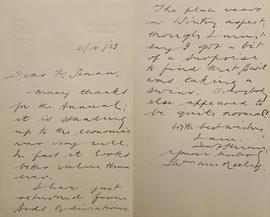 21/10/33
Dear Fr,
Many thanks
for the Annual;
it is standing
up to the economic
war very well.
In fact it looks
better value than
ever.
I have just
returned from
The place wears
a Wintry aspect,
though I must
say I got a bit
of a surprise
to find that Basil
was taking a
swim. Everybody
else appeared to
be quite normal.
With best wishes,
I am,